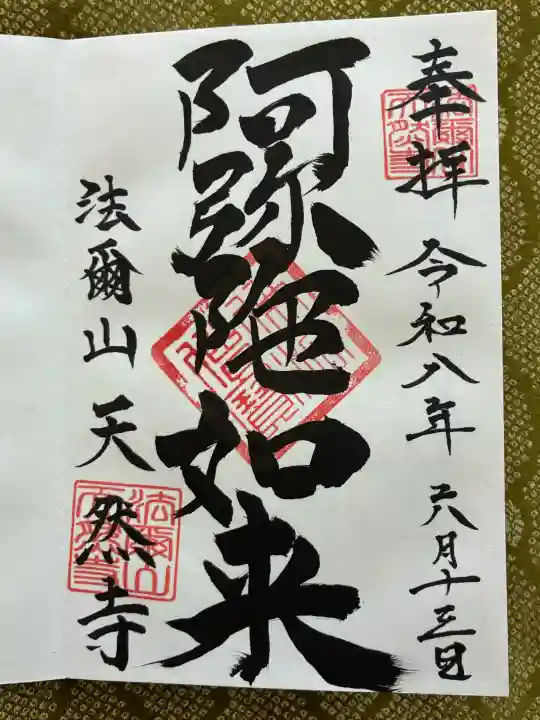 奉拝 令和八年六月十三日
阿弥陀如来
法爾山天然寺